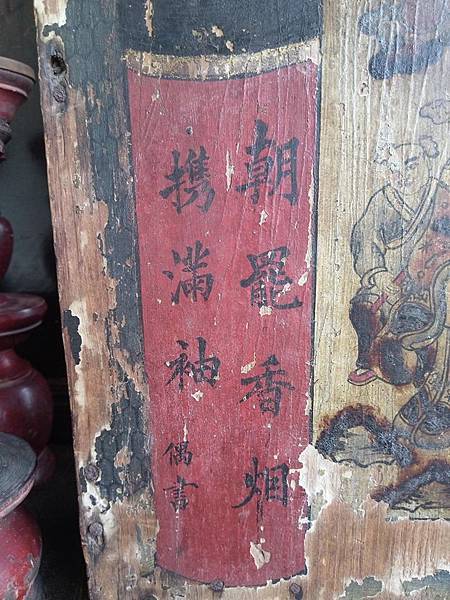 朝罷香烟
携滿袖
偶書